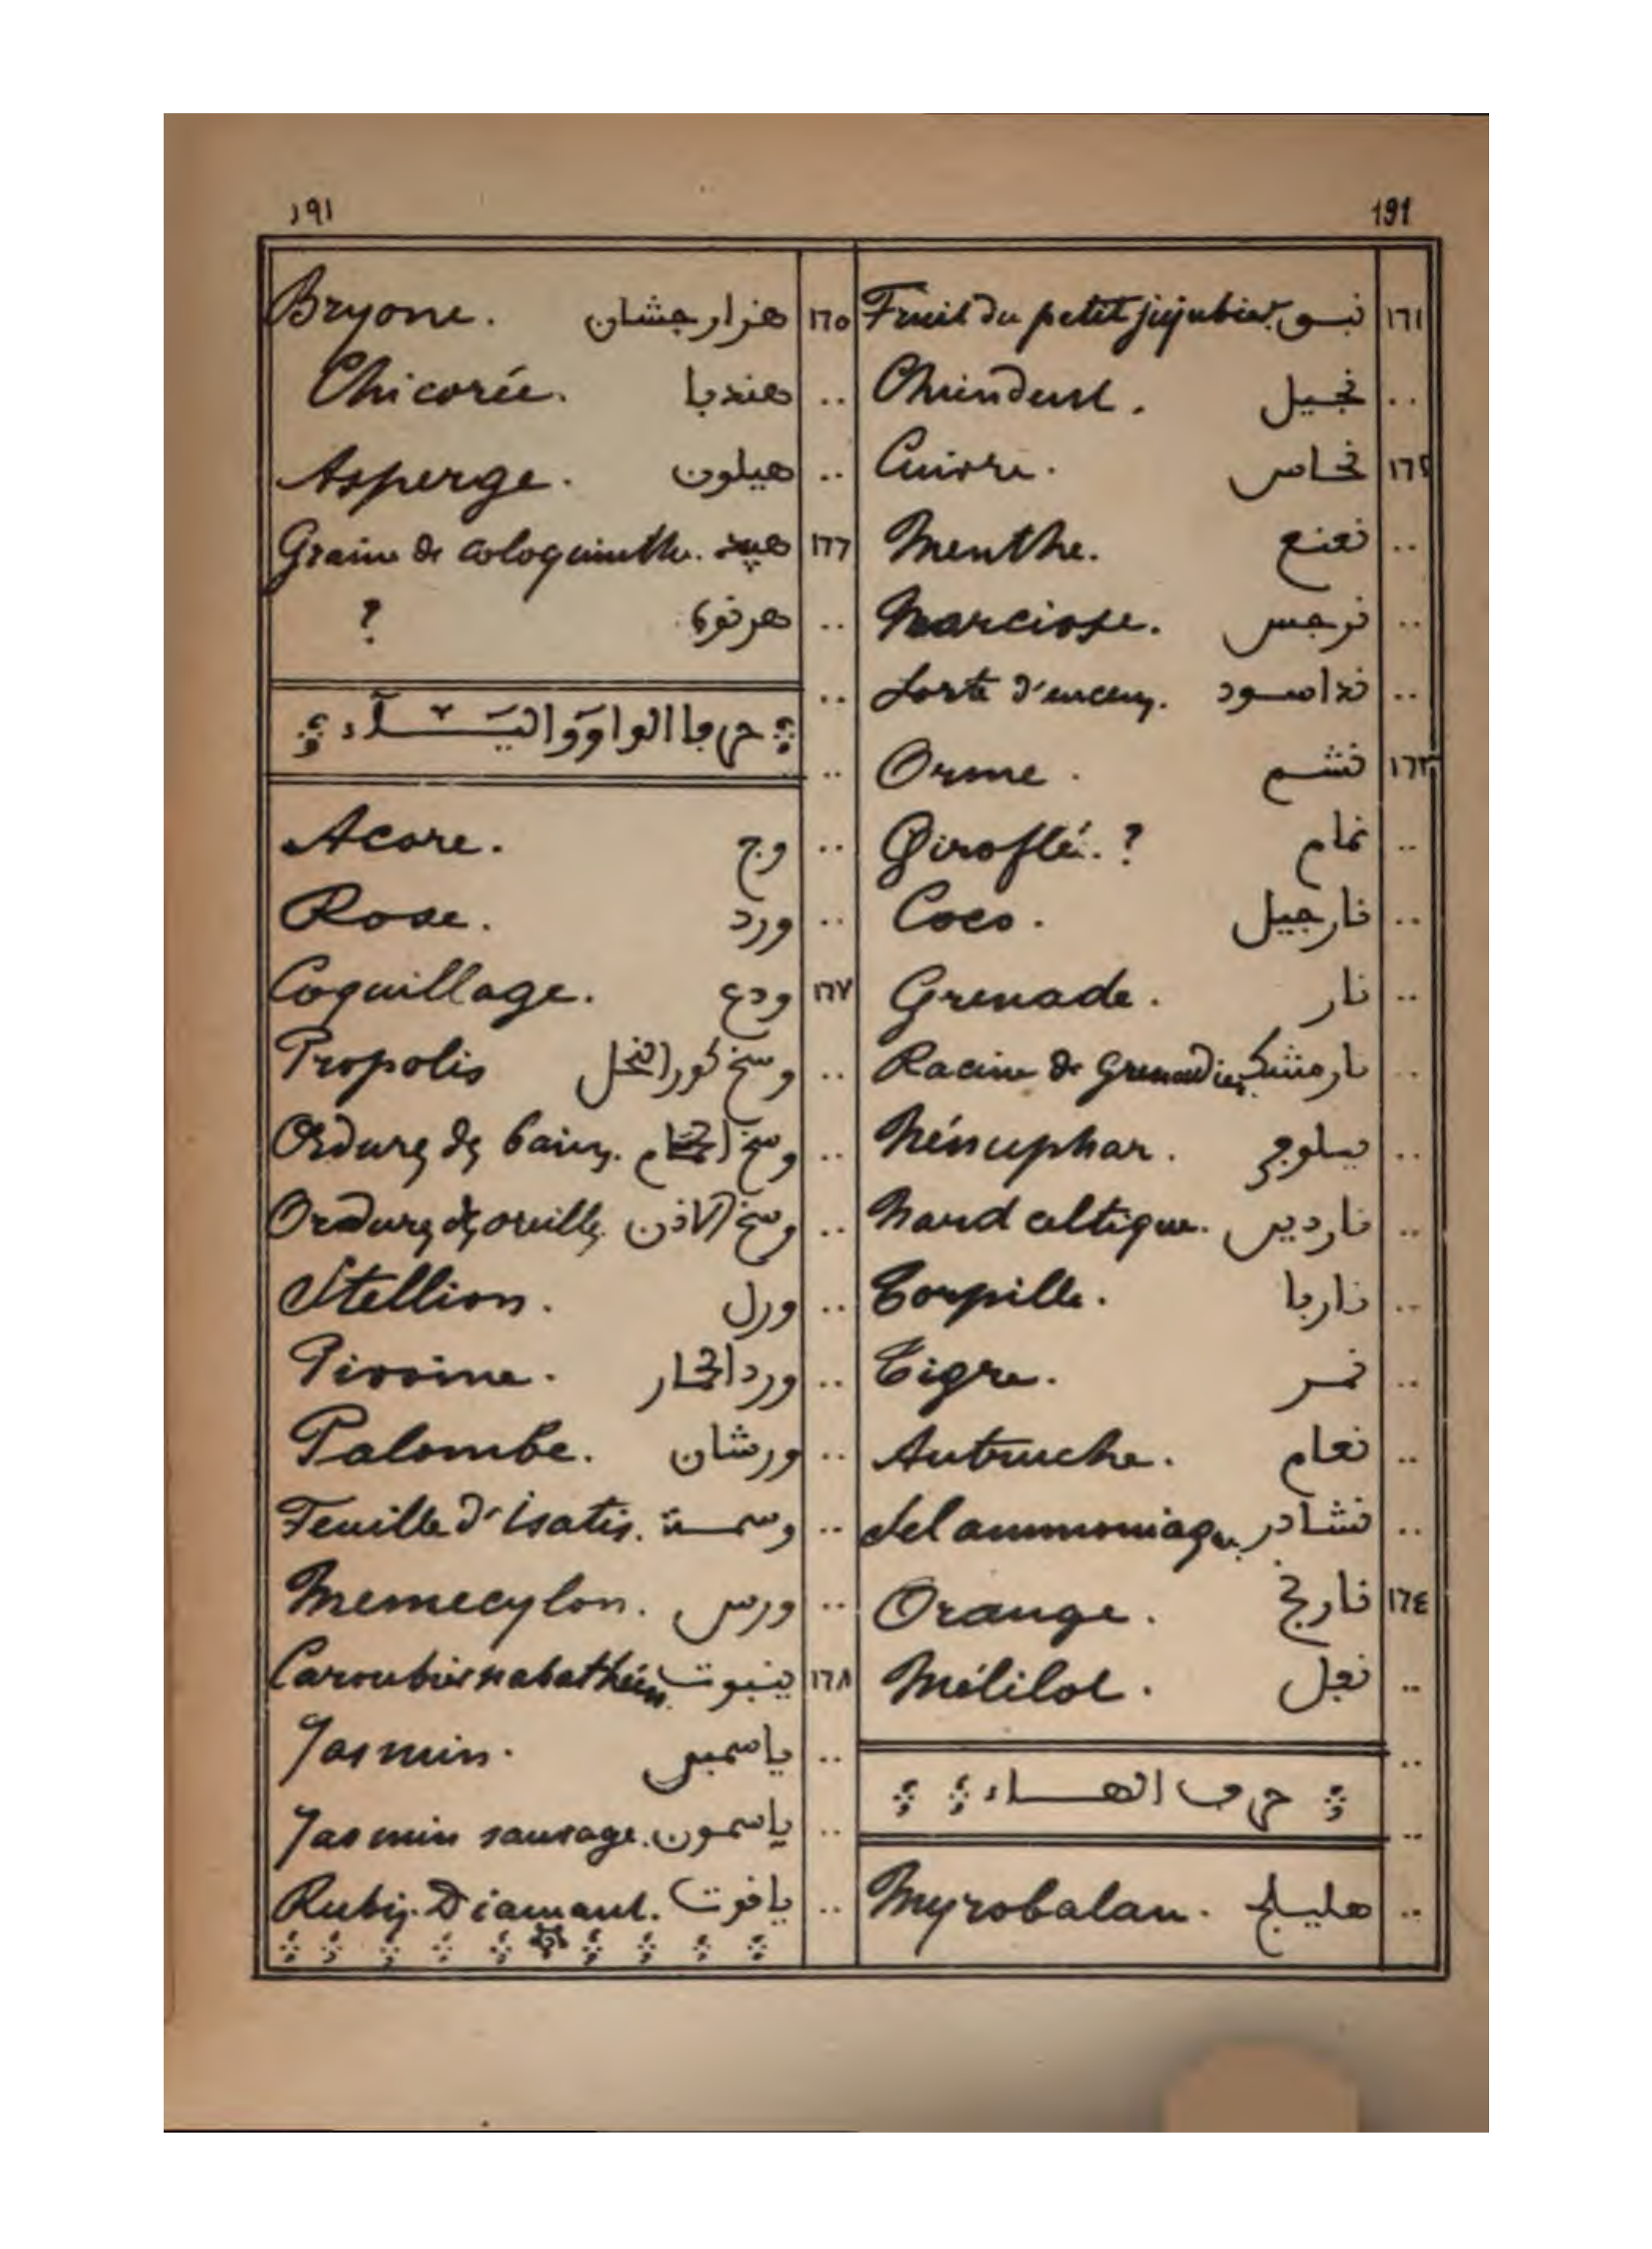 ١٩١ 191
١٦١ نبق Fruit du petit jujubier.
.. نجيل Chiendent.
١٦٢ نحاس Cuivre.
.. نعنع Menthe.
.. نرجس Narcisse.
.. ند اسود Sorte d'encens.
١٦٣ نشم Orme.
.. نمام Giroflé. ?
.. نارجيل Coco.
.. نار Grenade.
.. نارمشك Racine de Grenadier.
.. Nénuphar.
.. ناردين Nard celtique.
.. Torpille.
.. نمر Tigre.
.. نعام Autruche.
.. نشادر Sel ammoniaque
١٦٤ نارنج Orange.
.. نفل Mélilot.
.. حرف الهـــاء
.. هليلج Myrobalan.
١٦٥ هزارجشان Bryone.
.. هندبا Chicorée.
.. هيلون Asperge.
١٦٦ هبيد Graine de coloquinthe.
.. هرنوة ?
.. حرفا الواو واليـــاء
.. وج Acore.
.. ورد Rose.
١٦٧ ودع Coquillage.
.. وسخ كور النحل Propolis
.. وسخ الحمام Ordures des bains.
.. وسخ الاذن Ordures des oreilles.
.. ورل Stellion.
.. ورد الحمار Pivoine.
.. ورشان Palombe.
.. وسمة Feuille d'isatis.
.. ورس Memecylon.
١٦٨ ينبوت Caroubier nabathéen.
.. ياسمين Jasmin.
.. ياسمون Jasmin sauvage.
.. ياقوت Rubis. Diamant.